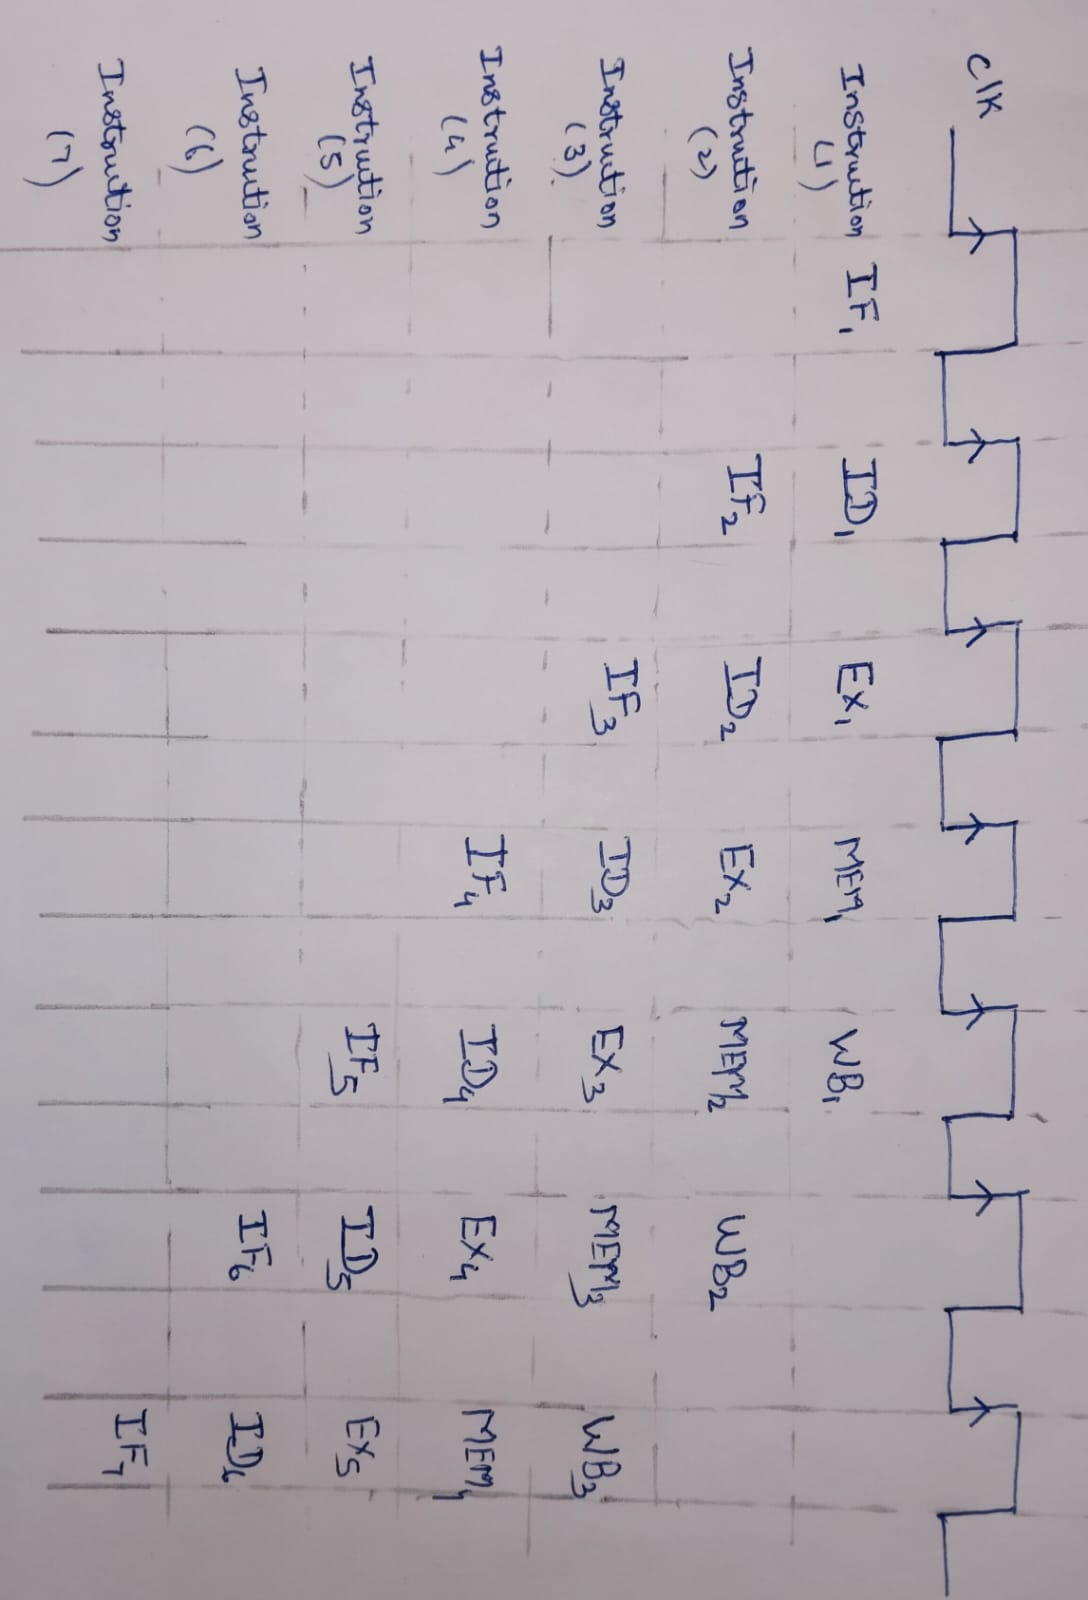 clk
Instruction IF₁ ID₁ EX₁ MEM₁ WB₁
(1)
Instruction IF₂ ID₂ EX₂ MEM₂ WB₂
(2)
Instruction IF₃ ID₃ EX₃ MEM₃ WB₃
(3)
Instruction IF₄ ID₄ EX₄ MEM₄
(4)
Instruction IF₅ ID₅ EX₅
(5)
Instruction IF₆ ID₆
(6)
Instruction IF₇
(7)